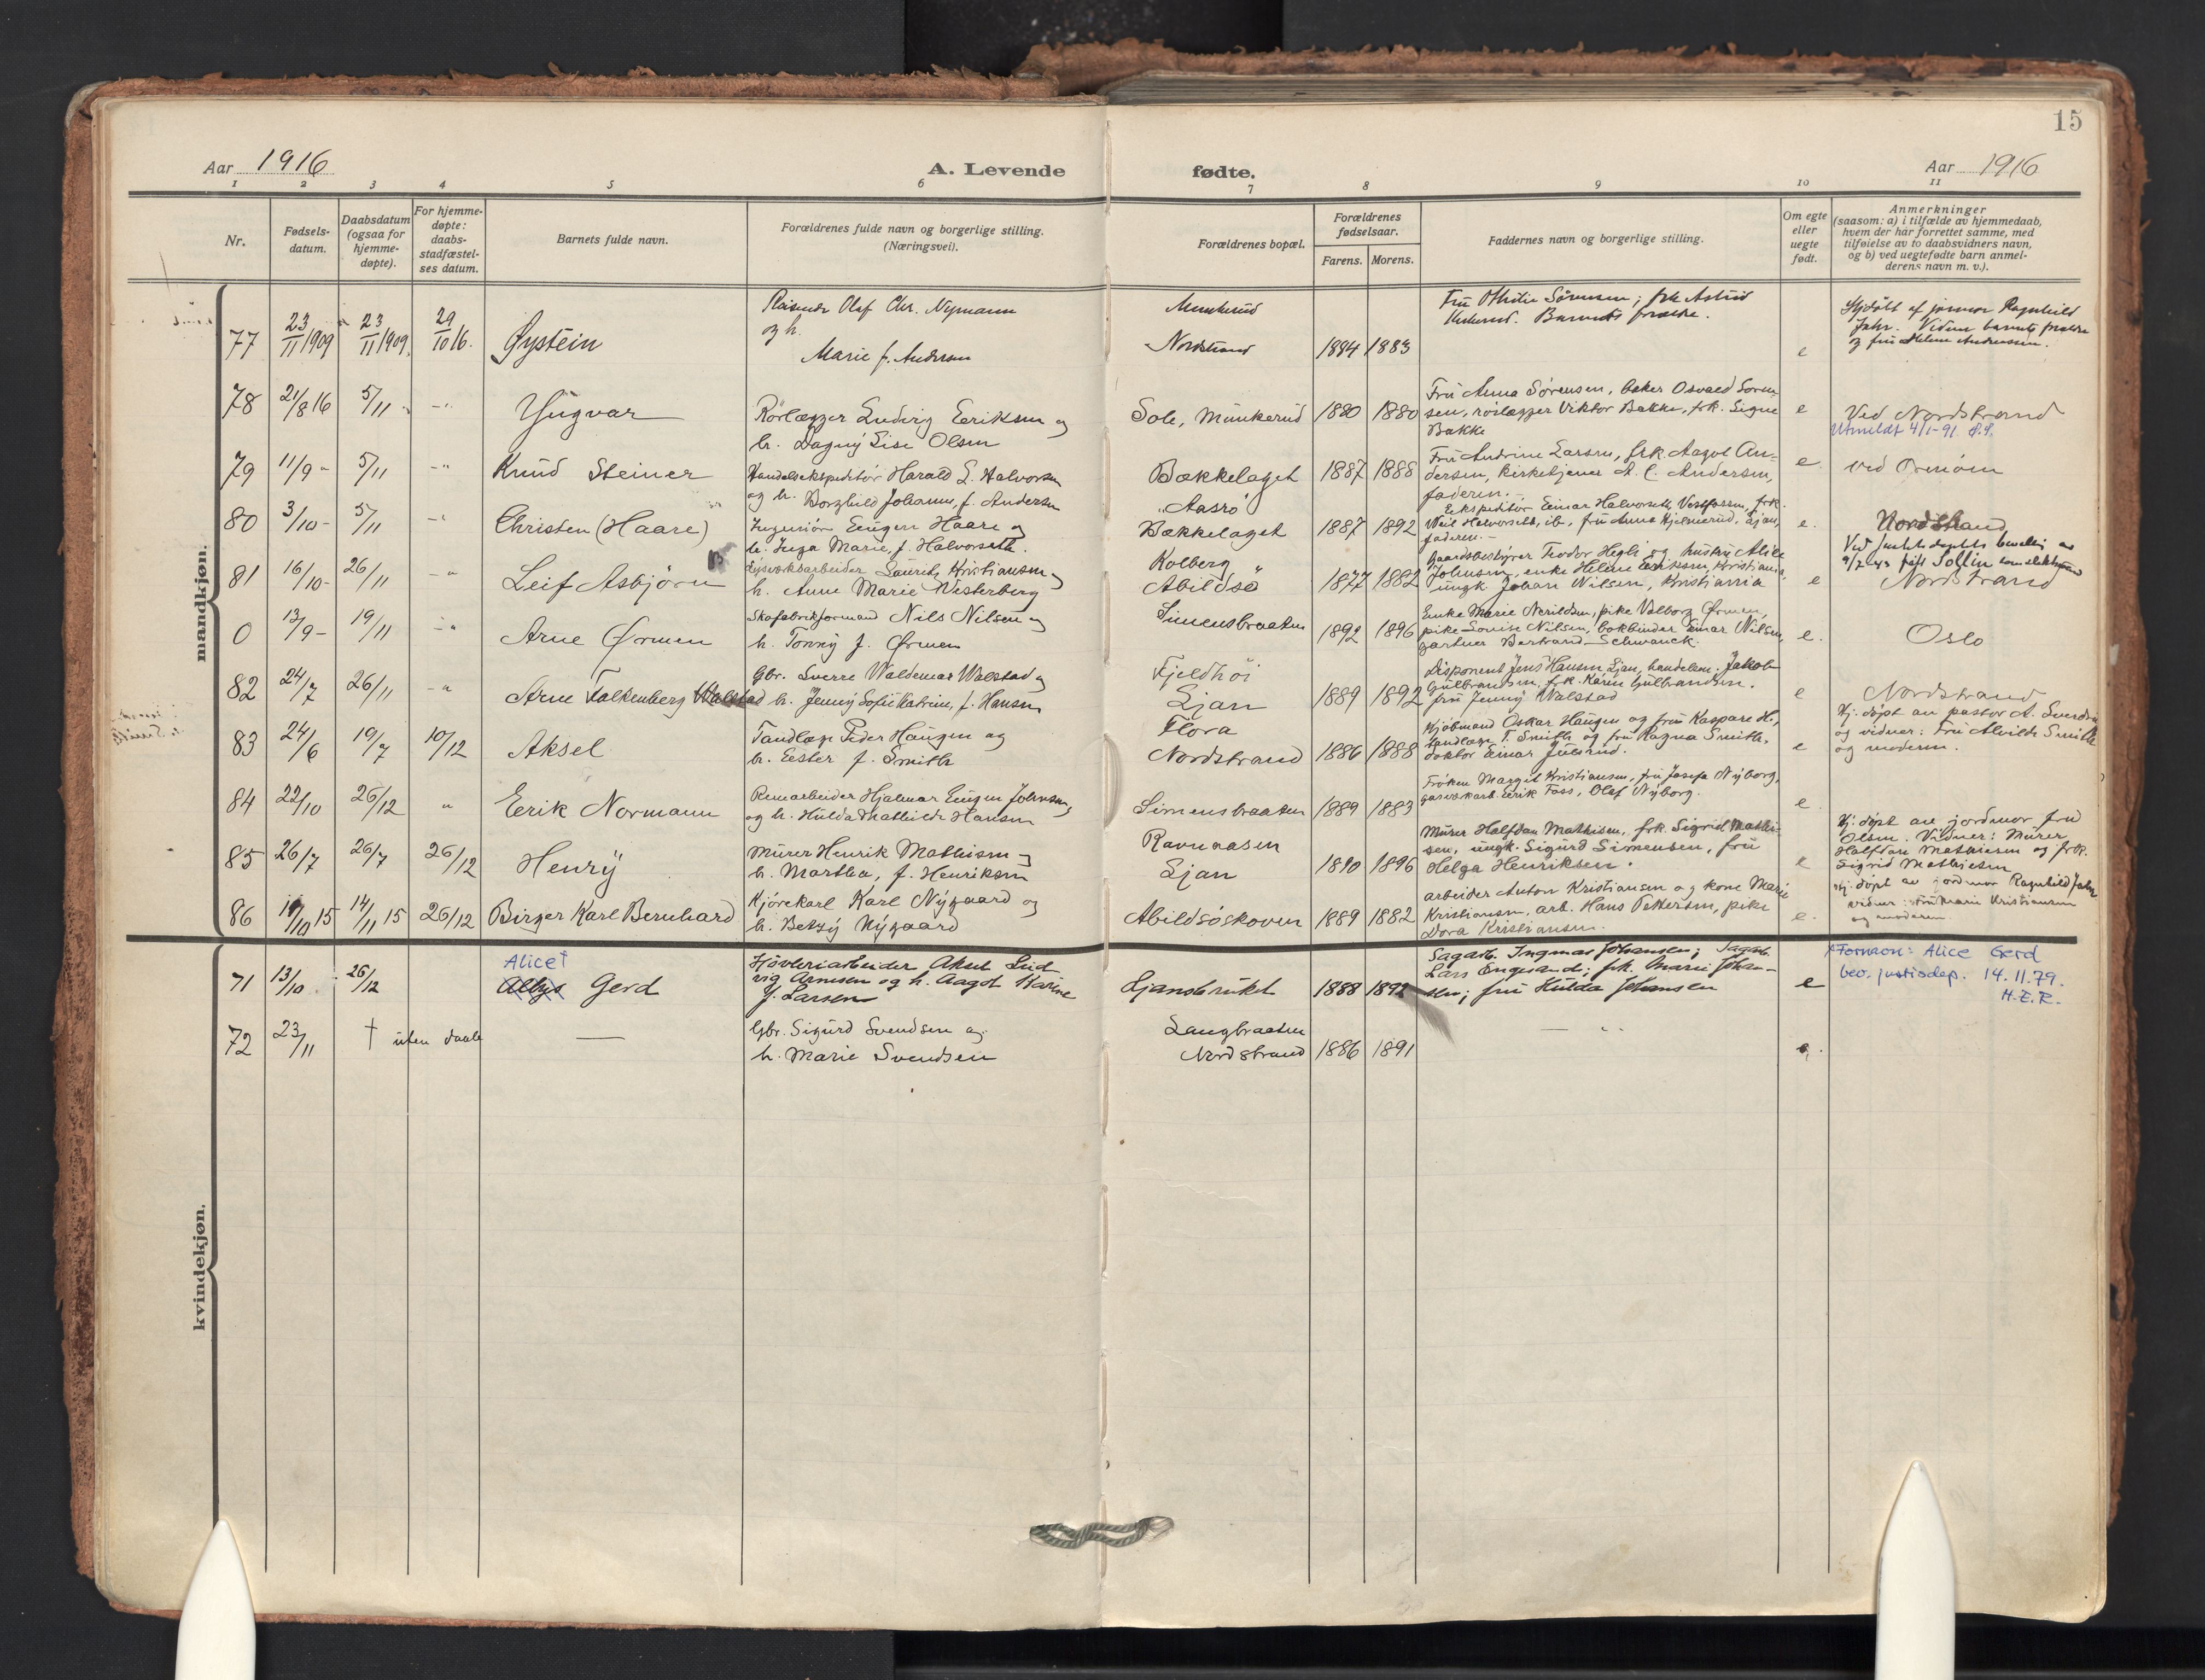 15
Aar 1916
A. Levende
fødte.
Aar 1916
1 2 3 4 5 6 7 8 9 10 11
Nr.
Fødsels-
datum.
Daabsdatum
(ogsaa for
hjemme-
døpte).
For hjemme-
døpte:
daabs-
stadfæstel-
ses datum.
Barnets fulde navn.
Forældrenes fulde navn og borgerlige stilling.
(Næringsvei).
Forældrenes bopæl.
Forældrenes
fødselsaar.
Farens. Morens.
Faddernes navn og borgerlige stilling.
Om egte
eller
uegte
født.
Anmerkninger
(saasom: a) i tilfælde av hjemmedaab,
hvem der har forrettet samme, med
tilføielse av to daabsvidners navn,
og b) ved uegtefødte barn anmel-
derens navn m. v.).
mandkjøn.
77 23/11 1909 23/11 1909. 29/10 16. Øystein
Reisende Olaf Chr. Nymann
og h.
Marie f. Andersen
Munkerud
Nordstrand 1884 1883
Fru Othilie Sørensen; frk Astrid
Barnets forældre.
e
Hjdøbt af jormor Ragnhild
Jahr. Vidner barnets forældre
og fru Helene Andreassen.
78 21/8 16 5/11 -"- Yngvar
Rørlægger Ludvig Eriksen og
h. Dagny Lise Olsen
Sole, Munkerud 1880 1880
Fru Anna Sørensen, baker Osvald Soren-
sen, rørlægger Viktor Bakke, frk. Signe
Bakke
e
Ved Nordstrand
Utmeldt 4/1-91
79 11/9 - 5/11 -"- Knud Steiner
Handelsekspeditør Harald L. Halvorsen
og h. Borghild Johanne, f. Andersen
Bækkelaget 1887 1888
Fru Andrine Larsen, frk. Aagot An-
dersen, kirketjener A. C. Andersen,
faderen.
e.
ved Ormøen
80 3/10 - 5/11 -"- Christen (Haare)
Ingeniør Eugen Haare og
h. Inga Marie, f. Halvorseth.
Aasrø
Bækkelaget 1887 1892
Ekspeditør Einar Halvorseth, Vestfossen, frk.
Halvorseth, ib., fru Anna Hjelmerud, Ljan,
faderen. -
e.
Nordstrand
81 16/10 - 26/11 -"- Leif Asbjørn
Lysværksarbeider Lauritz Kristiansen og
h. Anne Marie Westerberg
Kolberg
Abildsø 1877 1882
Gaardsbestyrer Teodor Hegli og hustru Alice
Johnsen, enke Helene Eriksen, Kristiania,
ungk. Johan Nilsen, Kristiania
e
Nordstrand
0 13/9 - 19/11 -"- Arne Ørmen
Skofabrikformand Nils Nilsen og
h. Tonny f. Ørmen
Simensbraaten 1892 1896
Enke Marie Nerildsen, pike Valborg Ørmen,
pike Louise Nilsen, bokbinder Einar Nilsen,
gartner Bertrand Schwanck.
e.
Oslo
82 24/7 26/11 -"- Arne Falkenberg Walstad
Gbr. Sverre Waldemar Walstad og
h. Jenny Sofie Katrine, f. Hansen
Fjeldhøi
Ljan 1889 1892
Disponent Jens Hansen Ljan, handelsm. Jakob
Gulbrandsen, frk. Karen Gulbrandsen.
fru Jenny Walstad
e
Nordstrand
83 24/6 19/7 10/12 Aksel
Tandlæge Peder Haugen og
h. Ester f. Smith
Flora
Nordstrand 1886 1888
Kjøbmand Oskar Haugen og fru Kaspare H.,
tandlæge T. Smith og fru Ragna Smith,
doktor Einar Juelrud.
e
Hj. døpt av pastor A. Sverdrup
og vidner: Fru Alvilde Smith
og moderen.
84 22/10 26/12 " Erik Normann
Remarbeider Hjalmar Eugen Johnsen,
og h. Hulda Mathilde Hansen
Simensbraaten 1889 1883
Frøken Margit Kristiansen, fru Josefa Nyborg,
gasværkarb. Erik Foss, Olaf Nyborg.
e.
85 26/7 26/7 26/12 Henry
Murer Henrik Mathisen og
h. Martha, f. Henriksen
Ravnaasen
Ljan 1890 1896
Murer Halfdan Mathisen, frk. Sigrid Mathi-
sen, ungk. Sigurd Simensen, fru
Helga Henriksen.
e
Hj. døpt av jordmor fru
Olsen. Vidner: Murer
Halfdan Mathiesen og frk.
Sigrid Mathiesen
86 19/10 15 14/11 15 26/12 Birger Karl Bernhard
Kjørekarl Karl Nygaard og
h. Betzy Nygaard
Abildsøskoven 1889 1882
arbeider Anton Kristiansen og kone Marie
Kristiansen, arb. Hans Pettersen, pike
Dora Kristiansen.
e.
Hj. døpt av jordmor Ragnhild Jahr
vidner: Fru Marie Kristiansen
og moderen.
kvindekjøn.
71 13/10 26/12
Alice†
Gerd
Høvleriarbeider Aksel Lud
vig Arnesen og h. Aagot Karine
f. Larsen
Ljansbruket 1888 1892
Sagarb. Ingmar Johansen; Sagarb.
Lars Engesand; frk. Marie Johan-
sen; fru Hulda Johansen
e
† Fornavn: Alice Gerd
bev. justisdep. 14.11.79.
H.E.R.
72 23/11 † uten daab —
Gbr. Sigurd Svendsen og
h. Marie Svendsen
Langbraaten
Nordstrand 1886 1891
e.